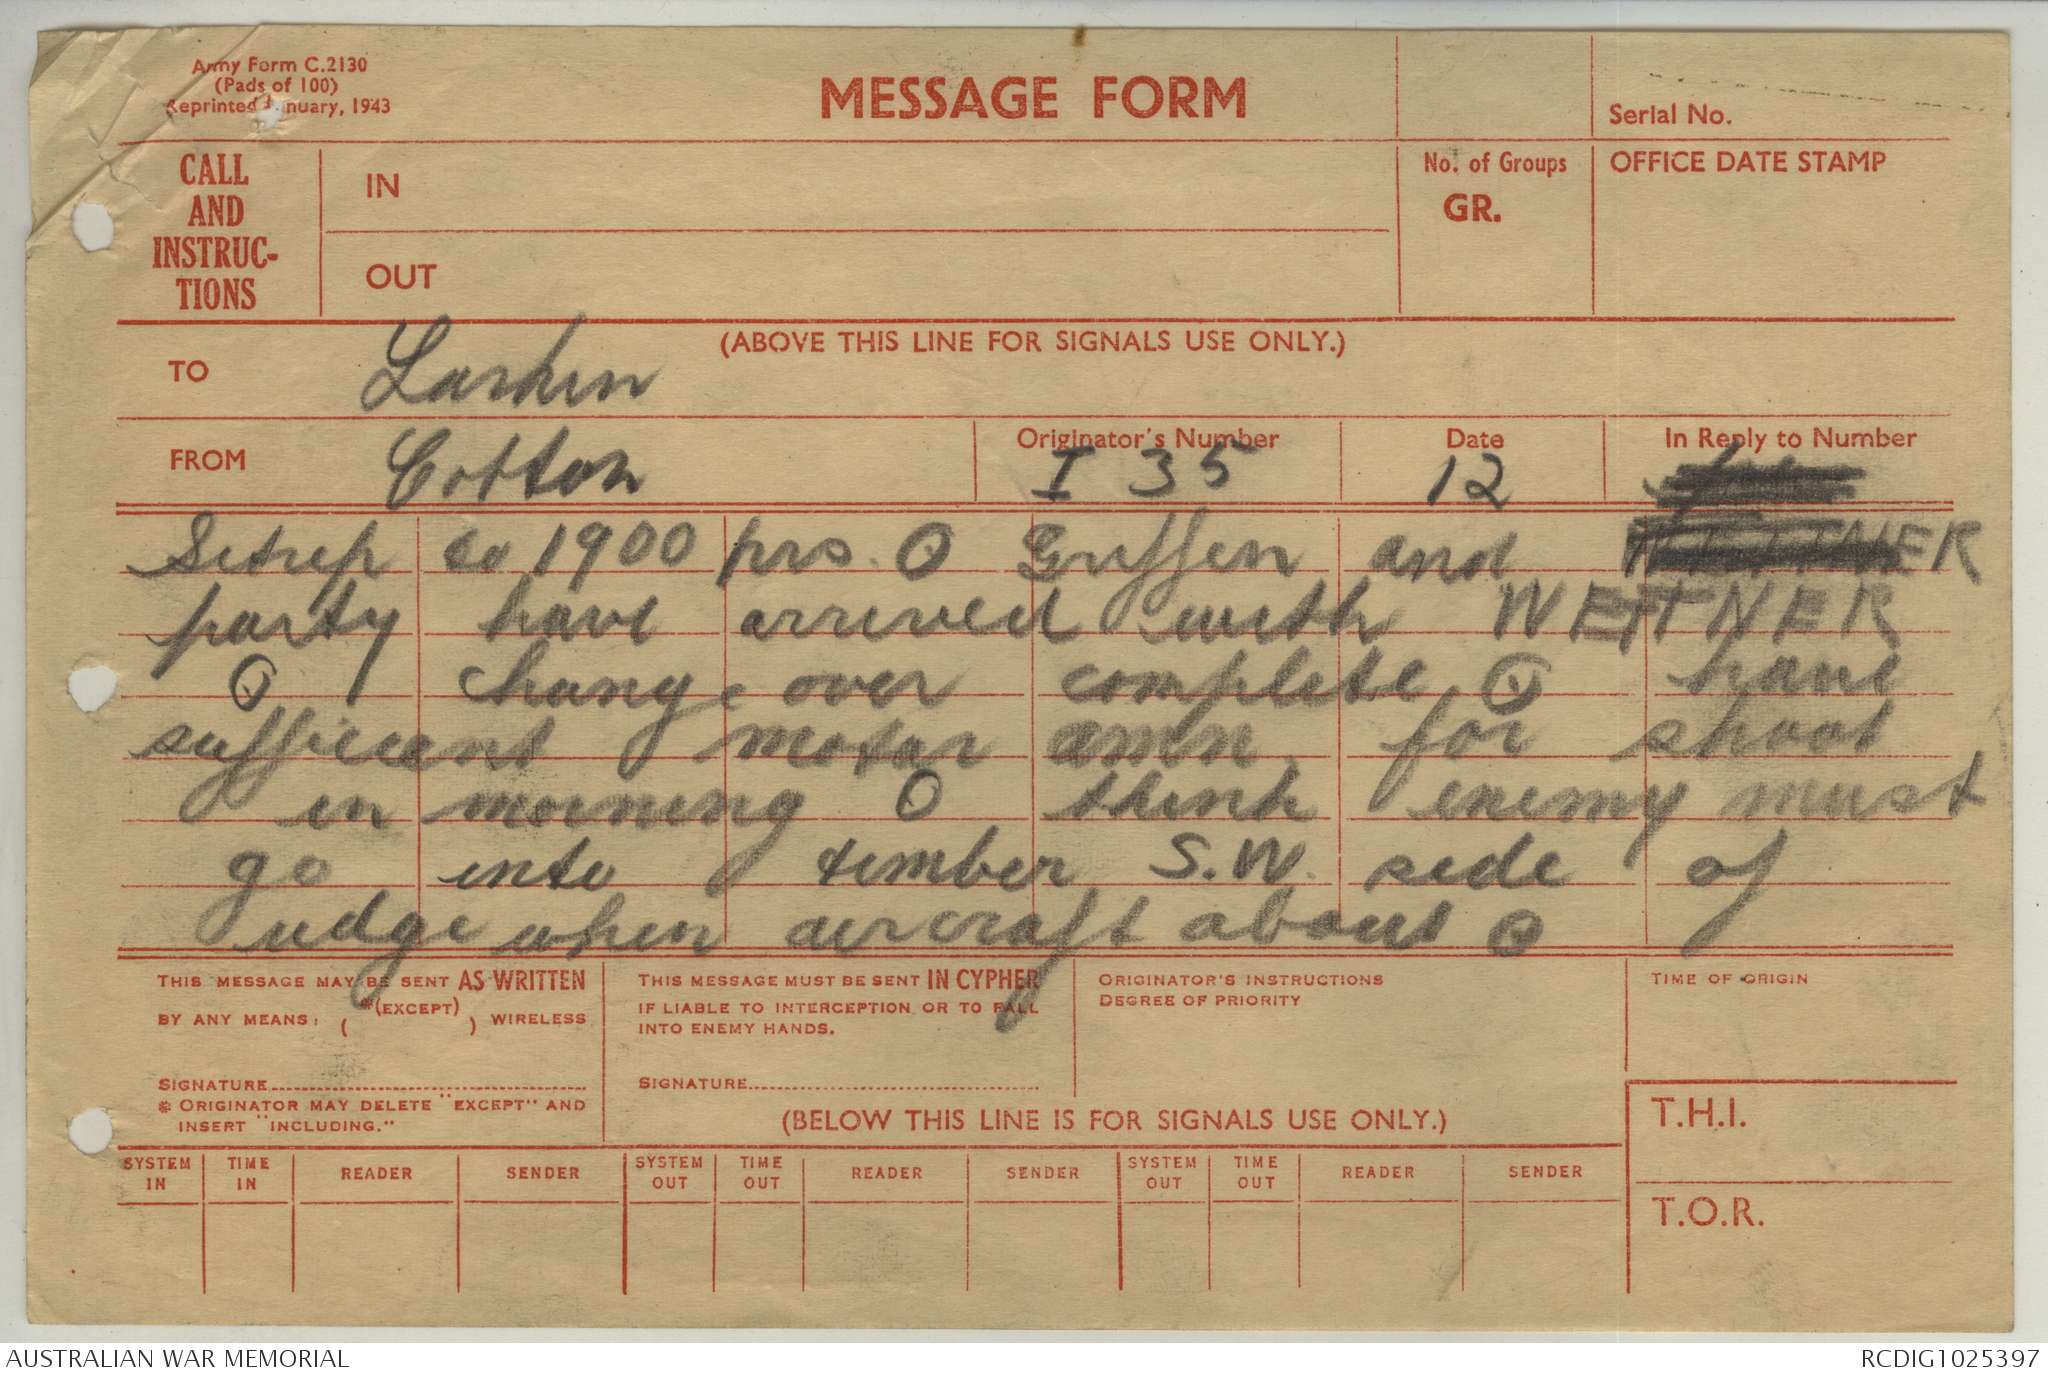 Army Form C.2130
(Pads of 100)
Reprinted January, 1943
MESSAGE FORM
Serial No.
CALL
AND
INSTRUC-
TIONS
IN
OUT
No. of Groups
GR.
OFFICE DATE STAMP
(ABOVE THIS LINE FOR SIGNALS USE ONLY.)
TO Larkin
FROM Cotton
Originator's Number
I 35
Date
12
In Reply to Number
Sitrep to 1900 hrs. O Griffen and
party have arrived with WETTNER
O change over complete O have
sufficient motar amn for shoot
in morning O think enemy must
go into timber S.W. side of
udge when aircraft about O
THIS MESSAGE MAY BE SENT AS WRITTEN
BY ANY MEANS: ( *(EXCEPT) ) WIRELESS
SIGNATURE
* ORIGINATOR MAY DELETE "EXCEPT" AND
INSERT "INCLUDING."
THIS MESSAGE MUST BE SENT IN CYPHER
IF LIABLE TO INTERCEPTION OR TO FALL
INTO ENEMY HANDS.
SIGNATURE
ORIGINATOR'S INSTRUCTIONS
DEGREE OF PRIORITY
TIME OF ORIGIN
(BELOW THIS LINE IS FOR SIGNALS USE ONLY.)
T.H.I.
T.O.R.
SYSTEM IN TIME IN READER SENDER SYSTEM OUT TIME OUT READER SENDER SYSTEM OUT TIME OUT READER SENDER
AUSTRALIAN WAR MEMORIAL
RCDIG1025397